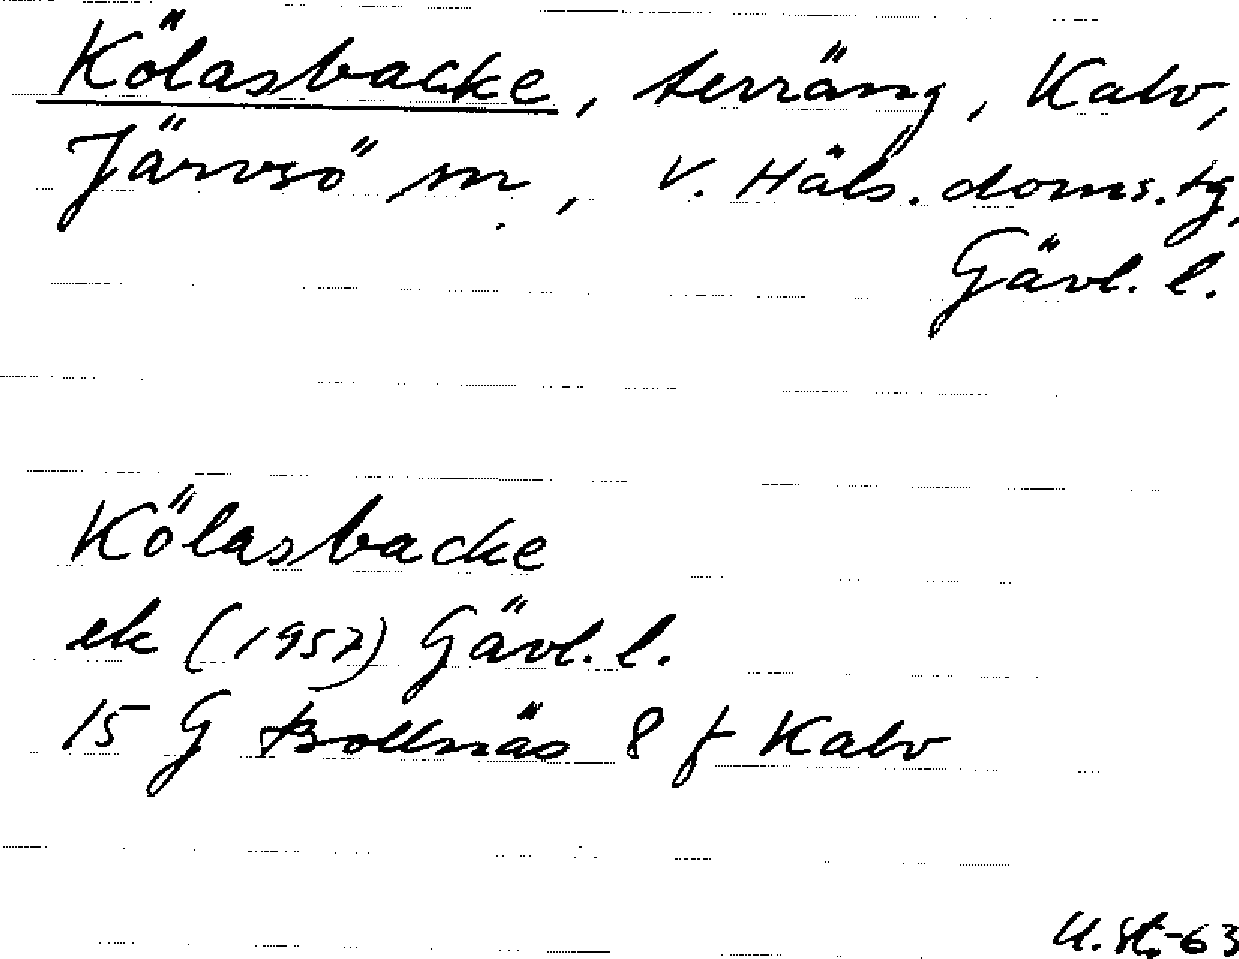 Kölasbacke, terräng, Kalv,
Järvsö sn, V. Häls. doms. tg,
Gävl. l.
Kölasbacke
ek (1957) Gävl. l.
15 G Bollnäs 8 f Kalv
U. St. -63